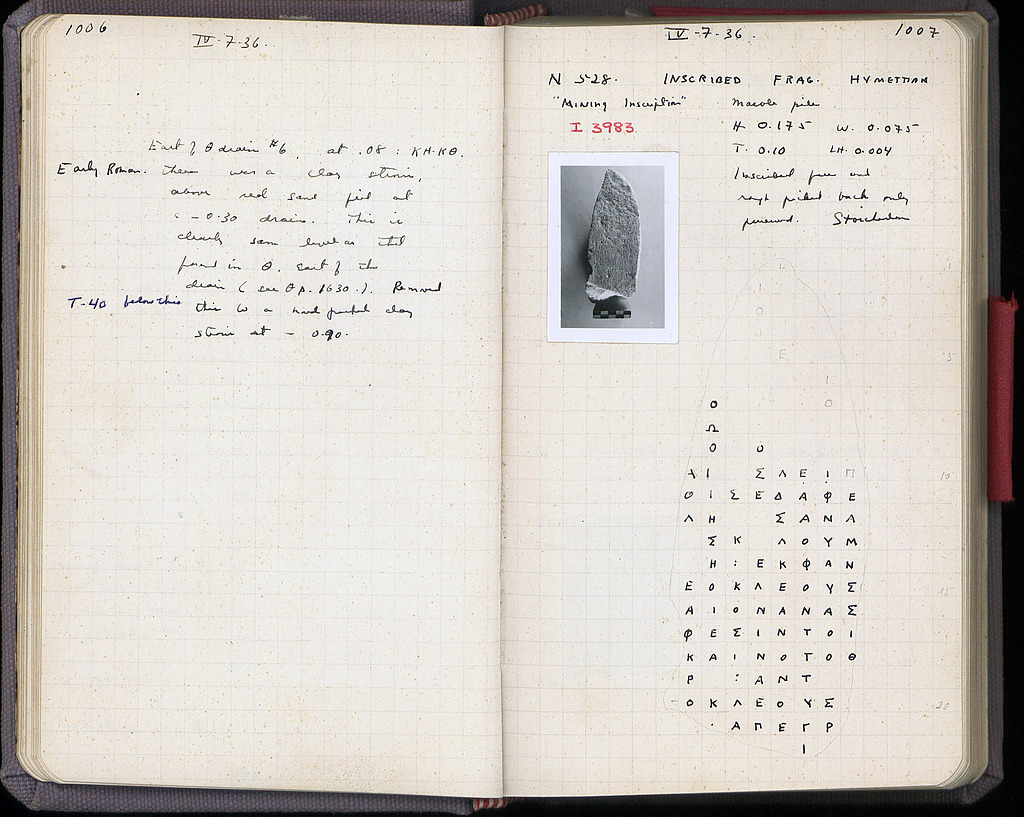 1006
IV-7-36.
East of Θ drain #6, at .08 : KH-KΘ.
Early Roman. there was a clay stroin,
above red sand fill at
c -0.30 drain. This is
clearly same level as that
found in Θ, east of the
drain (see Θ p. 1630.). Removed
T-40 below this
this to a hard packed clay
at - 0.90.
IV-7-36.
1007
N 528. INSCRIBED FRAG. HYMETTIAN
"Mining Inscription" Marble pile
I 3983
H 0.175 W. 0.075
T. 0.10 LH. 0.004
Inscribed face and
rough picked back only
preserved. Stoichedon
1
Ι
Ο
5
Ε
Ι
Ο Ο
Ω
Ο Ο
Ι Σ Λ Ε Ι Π 10
Ο Ι Σ Ε Δ Α Φ Ε
Λ Η Σ Α Ν Λ
Σ Κ Λ Ο Υ Μ
Η : Ε Κ Φ Α Ν
Ε Ο Κ Λ Ε Ο Υ Σ 15
Α Ι Ο Ν Α Ν Α Σ
Φ Ε Σ Ι Ν Τ Ο Ι
Κ Α Ι Ν Ο Τ Ο Θ
Ρ : Α Ν Τ
Ο Κ Λ Ε Ο Υ Σ 20
· Α Π Ε Γ Ρ
Ι